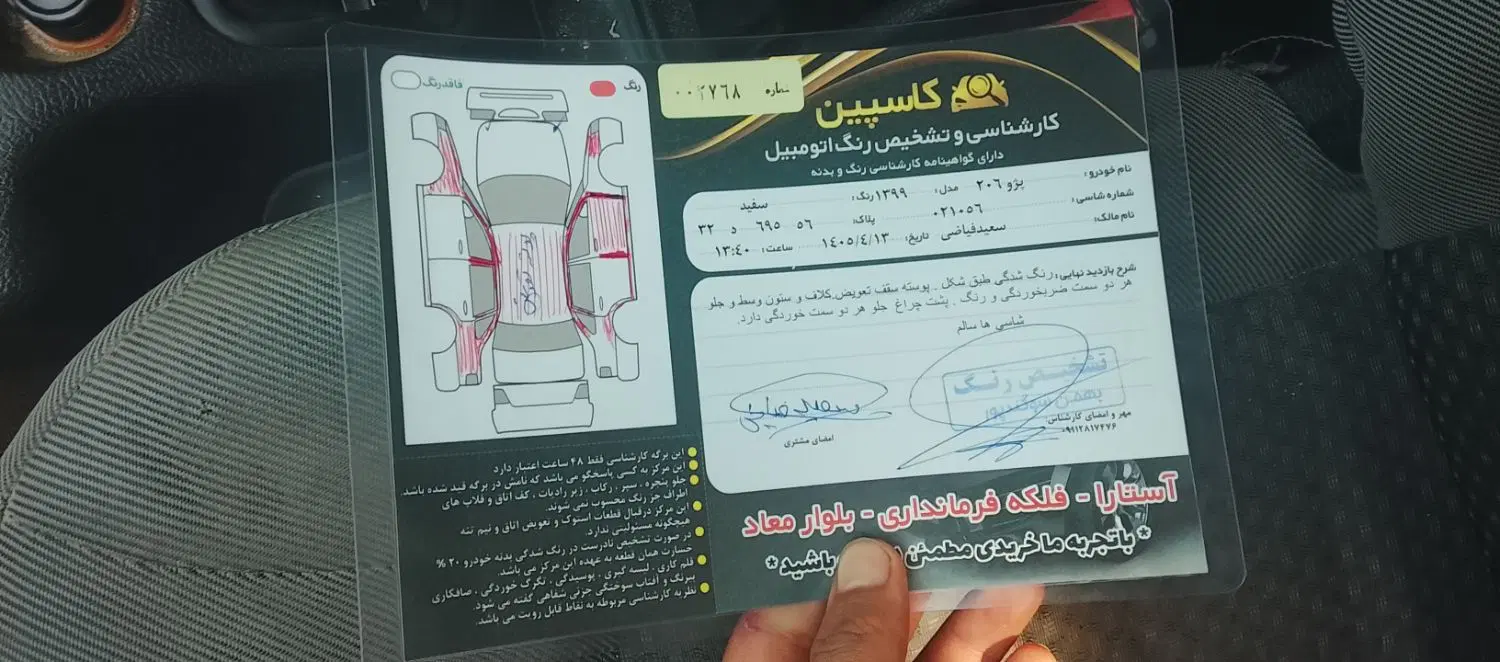 شماره ۰۰۲۷۶۸
کاسپین
کارشناسی و تشخیص رنگ اتومبیل
دارای گواهینامه کارشناسی رنگ و بدنه
نام خودرو: پژو ۲۰۶ مدل: ۱۳۹۹ رنگ: سفید
شماره شاسی: ۰۲۱۰۵۶ پلاک: ۵۶ ۶۹۵ د ۳۲
نام مالک: سعیدفیاضی تاریخ: ۱۴۰۵/۴/۱۳ ساعت: ۱۳:۴۰
شرح بازدید نهایی: رنگ شدگی طبق شکل . پوسته سقف تعویض.کلاف و ستون وسط و جلو
هر دو سمت ضربخوردگی و رنگ . پشت چراغ جلو هر دو سمت خوردگی دارد.
شاسی ها سالم
تشخیص رنگ
بهمن سوگندپور
مهر و امضای کارشناس:
۰۹۱۱۲۸۱۷۴۷۶
امضای مشتری
آستارا - فلکه فرمانداری - بلوار معاد
* باتجربه ما خریدی مطمئن باشید *
رنگ
فاقدرنگ
این برگه کارشناسی فقط ۴۸ ساعت اعتبار دارد
این مرکز به کسی پاسخگو می باشد که نامش در برگه قید شده باشد.
جلو پنجره ، سپر، رکاب ، زیر رادیات ، کف اتاق و قلاب های
اطراف جز رنگ محسوب نمی شوند.
این مرکز درقبال قطعات استوک و تعویض اتاق و نیم تنه
هیچگونه مسئولیتی ندارد.
در صورت تشخیص نادرست در رنگ شدگی بدنه خودرو ۲۰ %
خسارت همان قطعه به عهده این مرکز می باشد.
قلم کاری ، لیسه گیری ، پوسیدگی ، تگرگ خوردگی ، صافکاری
بیرنگ و آفتاب سوختگی جزئی شفاهی گفته می شود.
نظریه کارشناسی مربوطه به نقاط قابل رویت می باشد.